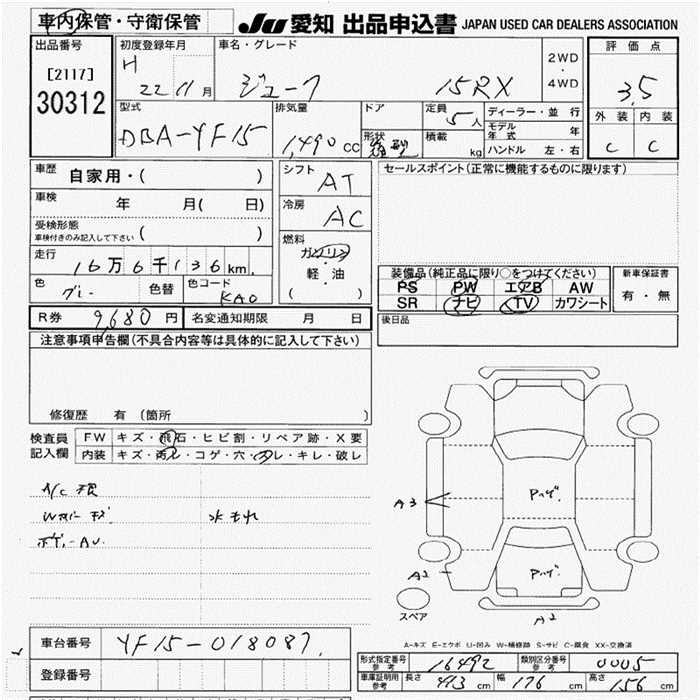 車内保管・守衛保管
JU 愛知 出品申込書 JAPAN USED CAR DEALERS ASSOCIATION
出品番号
[2117]
30312
初度登録年月
H 22 11 月
車名・グレード
ジューク 15RX
2WD
・
4WD
評価点
3.5
外装 内装
C C
型式
DBA-YF15
排気量
1,490 cc
ドア
形状
定員
5人
積載
kg
ディーラー・並行
モデル年式 年
ハンドル 左・右
車歴
自家用・( )
車検
年 月( 日)
受検形態
車検付きのみ記入して下さい ( )
走行
16万6千136km
色
グレー
色替
色コード
KAD
シフト
AT
冷房
AC
燃料
ガソリン
軽・油
( )
セールスポイント(正常に機能するものに限ります)
装備品(純正品に限り○をつけてください)
PS PW エアB AW
SR ナビ TV カワシート
新車保証書
有・無
後日品
R券 9,680 円
名変通知期限 月 日
注意事項申告欄(不具合内容等は具体的に記入して下さい)
修復歴 有 (箇所 )
検査員
記入欄
FW キズ・飛石・ヒビ割・リペア跡・X要
内装 キズ・汚レ・コゲ・穴・スレ・キレ・破レ
水もれ
A3
Pハゲ.
Pハゲ.
A2
A2
スペア
A-キズ E-エクボ U-凹み W-補修跡 S-サビ C-腐食 XX-交換済
車台番号
YF15-018087
登録番号
形式指定番号
参考
16492
類別区分番号
参考
0005
車庫証明用
参考
長さ 413 cm 幅 176 cm 高さ 156 cm